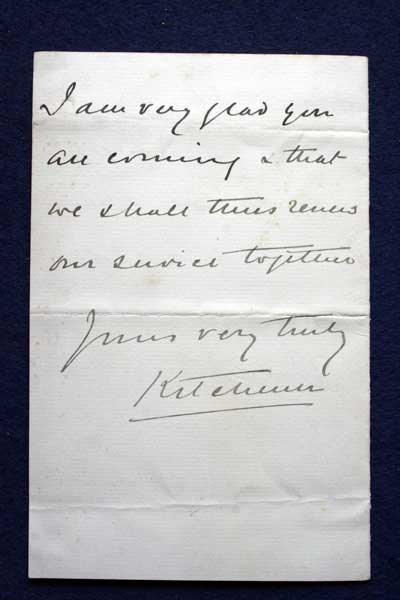 I am very glad you
are coming & that
we shall thus renew
our service together
Yours very truly
Kitchener